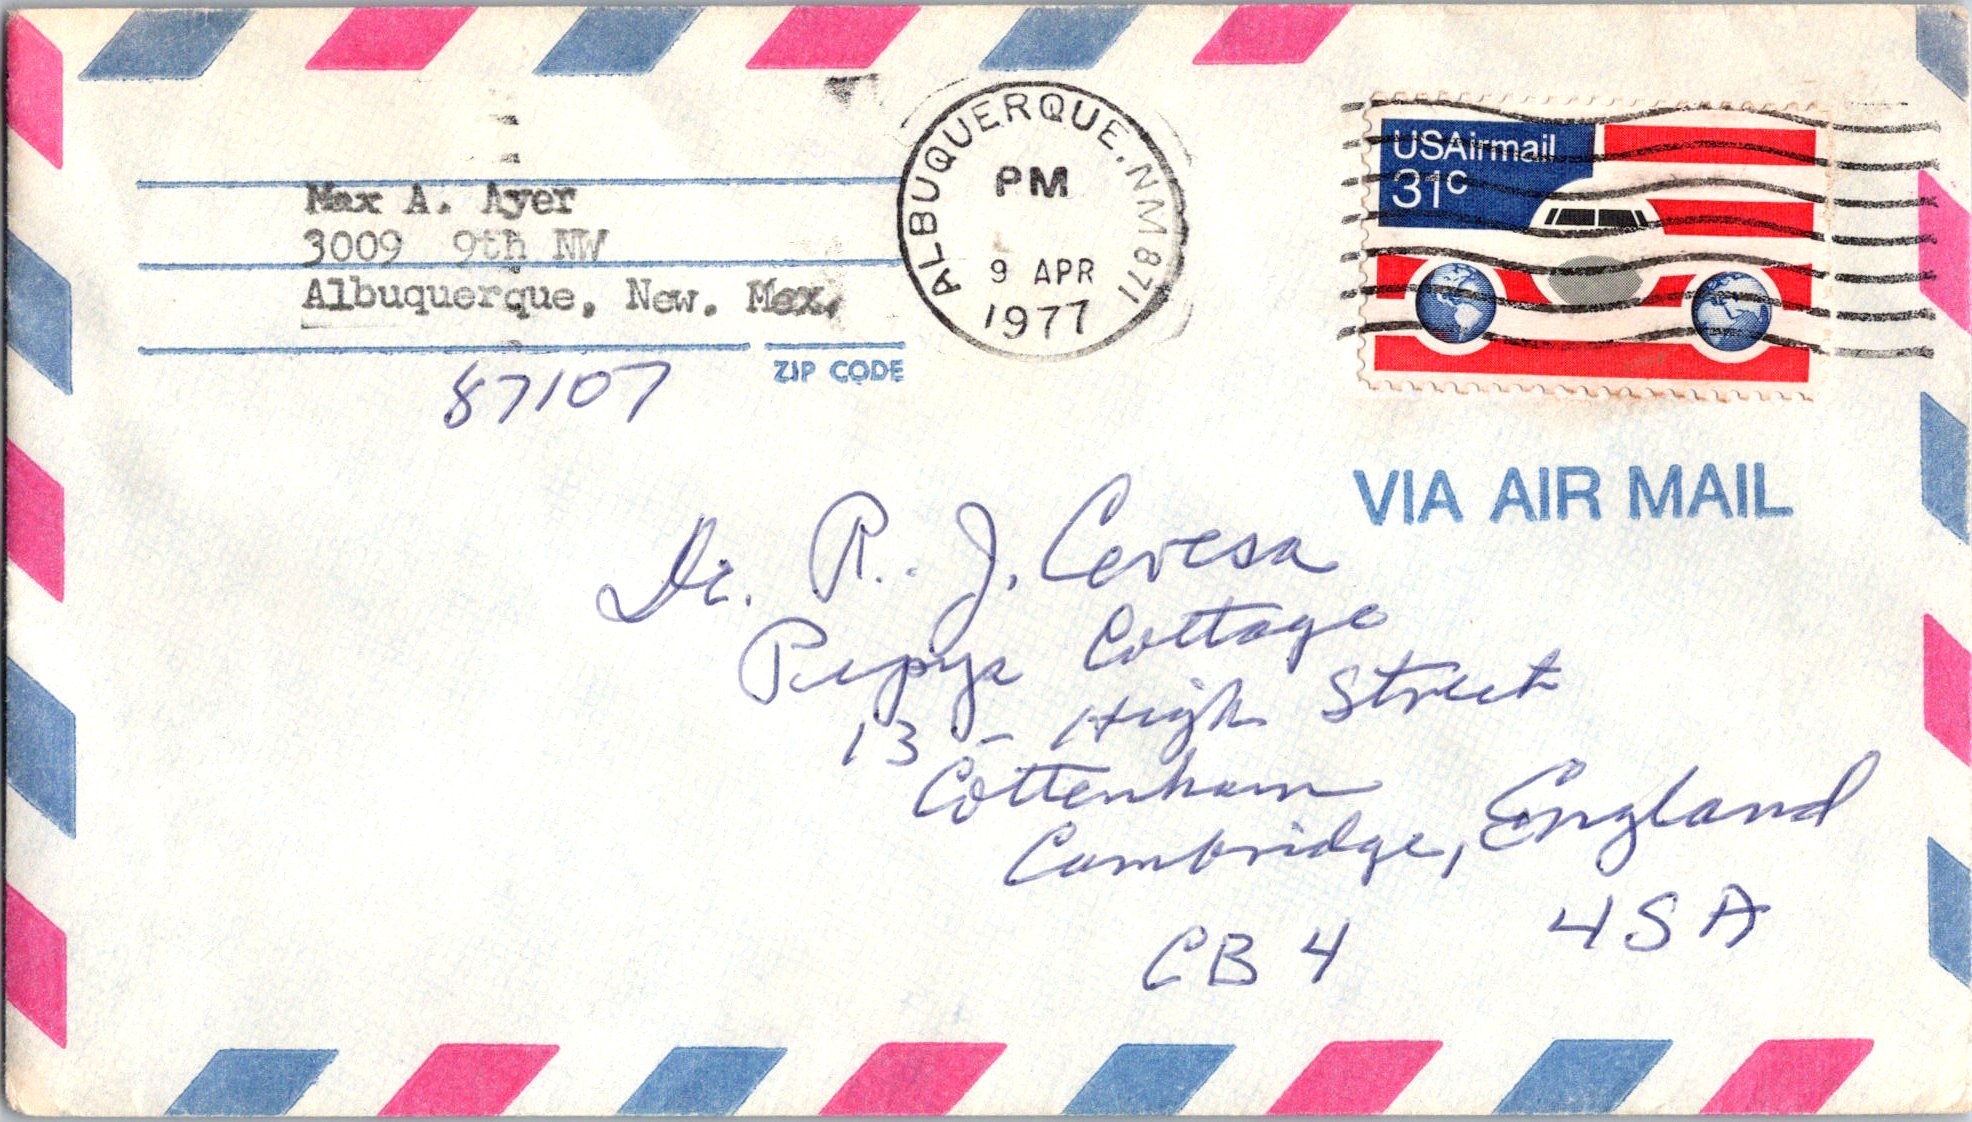 Max A. Ayer
3009 9th NW
Albuquerque, New. Mex.
ZIP CODE
87107
ALBUQUERQUE, NM 871
PM
9 APR
1977
USAirmail
31c
VIA AIR MAIL
Dr. R. J. Ceresa
Pepys Cottage
13 - High Street
Cottenham
Cambridge, England
CB 4 4SA